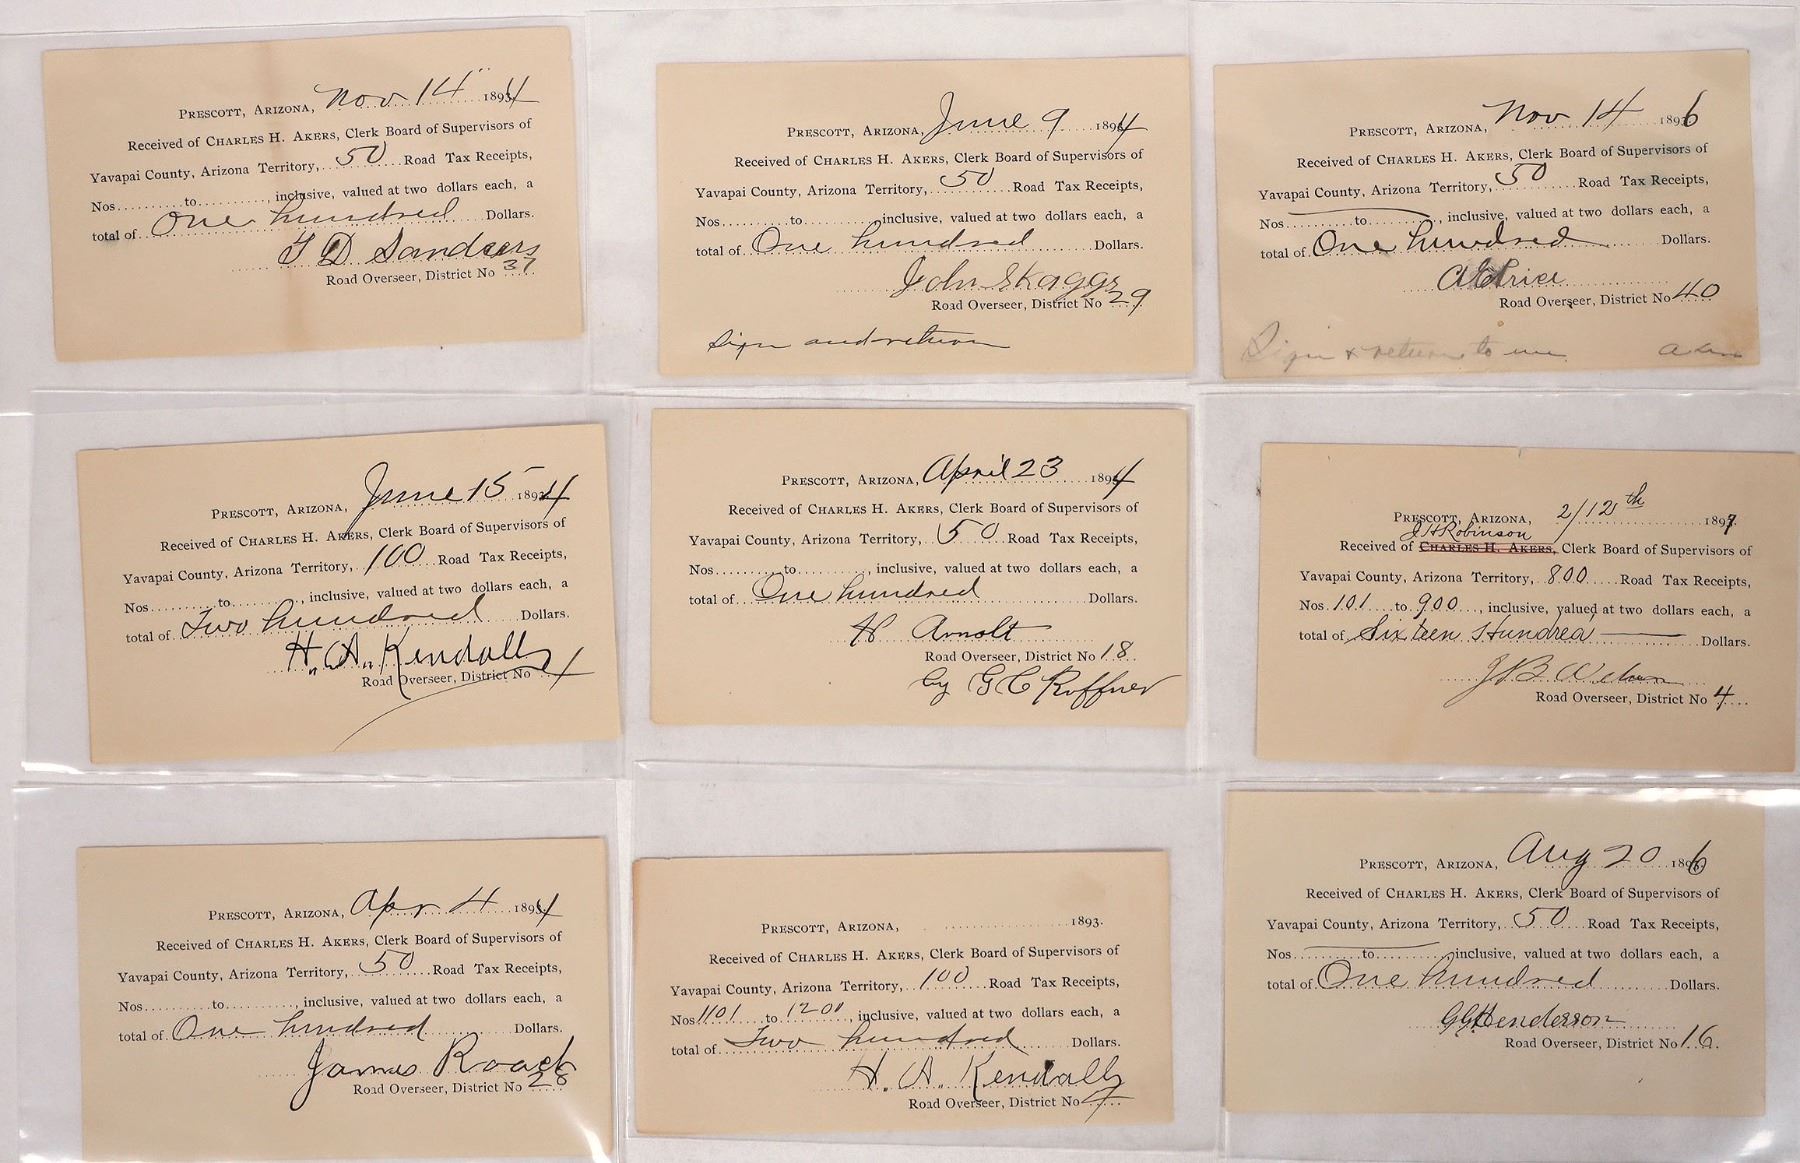 PRESCOTT, ARIZONA, Nov 14 1894
Received of CHARLES H. AKERS, Clerk Board of Supervisors of
Yavapai County, Arizona Territory, 50 Road Tax Receipts,
Nos. to , inclusive, valued at two dollars each, a
total of One hundred Dollars.
D Sanders
Road Overseer, District No 37
PRESCOTT, ARIZONA, June 9 1894
Received of CHARLES H. AKERS, Clerk Board of Supervisors of
Yavapai County, Arizona Territory, 50 Road Tax Receipts,
Nos. to , inclusive, valued at two dollars each, a
total of One hundred Dollars.
John Skaggs
Road Overseer, District No 29
Sign and return
PRESCOTT, ARIZONA, Nov 14 1896
Received of CHARLES H. AKERS, Clerk Board of Supervisors of
Yavapai County, Arizona Territory, 50 Road Tax Receipts,
Nos to , inclusive, valued at two dollars each, a
total of One hundred Dollars.
Road Overseer, District No 40
Sign & return to me Akers
PRESCOTT, ARIZONA, June 15 1894
Received of CHARLES H. AKERS, Clerk Board of Supervisors of
Yavapai County, Arizona Territory, 100 Road Tax Receipts,
Nos. to , inclusive, valued at two dollars each, a
total of Two hundred Dollars.
H. A. Kendall
Road Overseer, District No
PRESCOTT, ARIZONA, April 23 1894
Received of CHARLES H. AKERS, Clerk Board of Supervisors of
Yavapai County, Arizona Territory, 50 Road Tax Receipts,
Nos. to , inclusive, valued at two dollars each, a
total of One hundred Dollars.
H Arnolt
Road Overseer, District No 18
by G C Ruffner
PRESCOTT, ARIZONA, 2/12th 1897.
J H Robinson
Received of CHARLES H. AKERS, Clerk Board of Supervisors of
Yavapai County, Arizona Territory, 800 Road Tax Receipts,
Nos. 101 to 900, inclusive, valued at two dollars each, a
total of Sixteen Hundred Dollars.
J B
Road Overseer, District No 4
PRESCOTT, ARIZONA, Apr 4 1894
Received of CHARLES H. AKERS, Clerk Board of Supervisors of
Yavapai County, Arizona Territory, 50 Road Tax Receipts,
Nos. to , inclusive, valued at two dollars each, a
total of One hundred Dollars.
James Roach
Road Overseer, District No 28
PRESCOTT, ARIZONA, 1893.
Received of CHARLES H. AKERS, Clerk Board of Supervisors of
Yavapai County, Arizona Territory, 100 Road Tax Receipts,
Nos 1101 to 1200, inclusive, valued at two dollars each, a
total of Two hundred Dollars.
H. A. Kendall
Road Overseer, District No
PRESCOTT, ARIZONA, Aug 20 1896
Received of CHARLES H. AKERS, Clerk Board of Supervisors of
Yavapai County, Arizona Territory, 50 Road Tax Receipts,
Nos. to , inclusive, valued at two dollars each, a
total of One hundred Dollars.
GG Henderson
Road Overseer, District No 16.